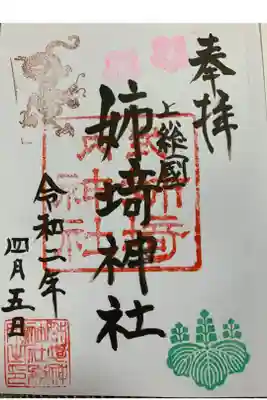 奉拝
上総國
姉埼神社
令和二年
四月五日